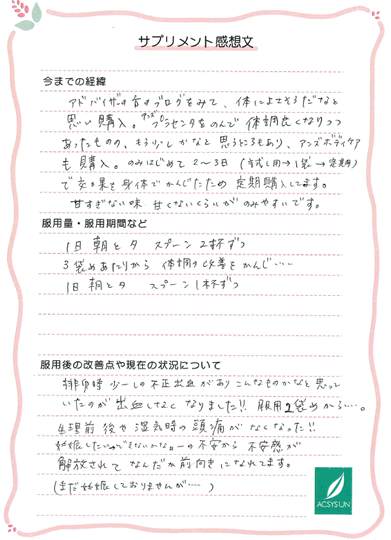 サプリメント感想文
今までの経緯
アドバイザーさんのブログをみて、体によさそうだなと
思い購入。アンズプラセンタをのんで体調良くなりつつ
あったものの、もう少しかなと思うところもあり、アンズボディケア
も購入。のみはじめて2〜3日(お試し用→1袋→定期用)
で効果を身体でかんじたため定期購入してます。
甘すぎない味 甘くないくらいがのみやすいです。
服用量・服用期間など
1日 朝と夕 スプーン2杯ずつ
3袋めあたりから 体調の改善をかんじ‥‥
1日 朝と夕 スプーン1杯ずつ
服用後の改善点や現在の状況について
排卵時少しの不正出血があり こんなものかなと思って
いたのが 出血しなくなりました!! 服用2袋めから‥‥。
生理前後や湿気時の頭痛がなくなった!!
妊娠したいのできないかな。の不安から 不安感が
解放されて なんだか前向きになれてます。
(まだ妊娠しておりませんが‥‥)
ACSYSUN